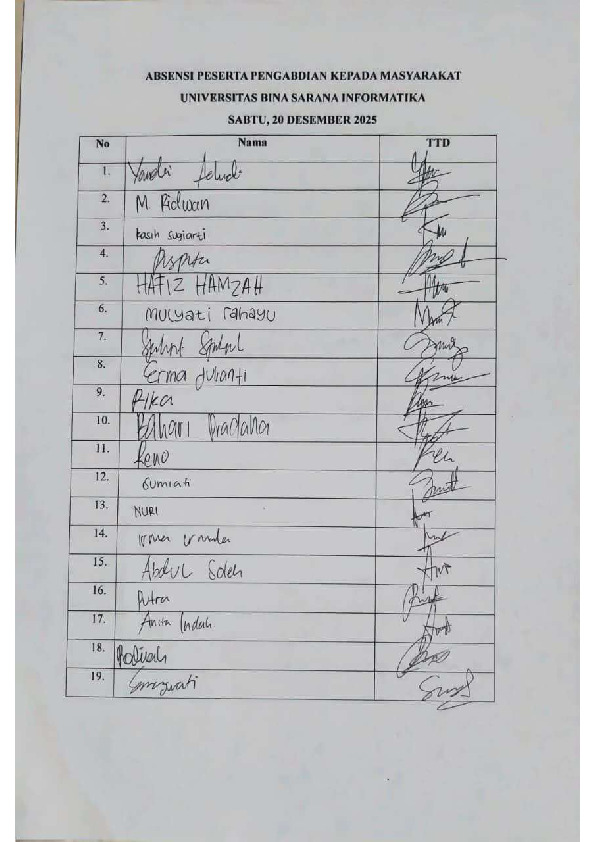 ABSENSI PESERTA PENGABDIAN KEPADA MASYARAKAT
UNIVERSITAS BINA SARANA INFORMATIKA
SABTU, 20 DESEMBER 2025
No Nama TTD
1. Yandri
2. M. Ridwan
3. kasih sugiarti
4. Puspita
5. HAFIZ HAMZAH
6. Mulyati rahayu
7.
8. Erma Julianti
9. Rika
10. Bahari Pradana
11. Reno
12. Gumiati
13. NURI
14. irma
15. Abdul Soleh
16. Putra
17. Anita Indah
18.
19.